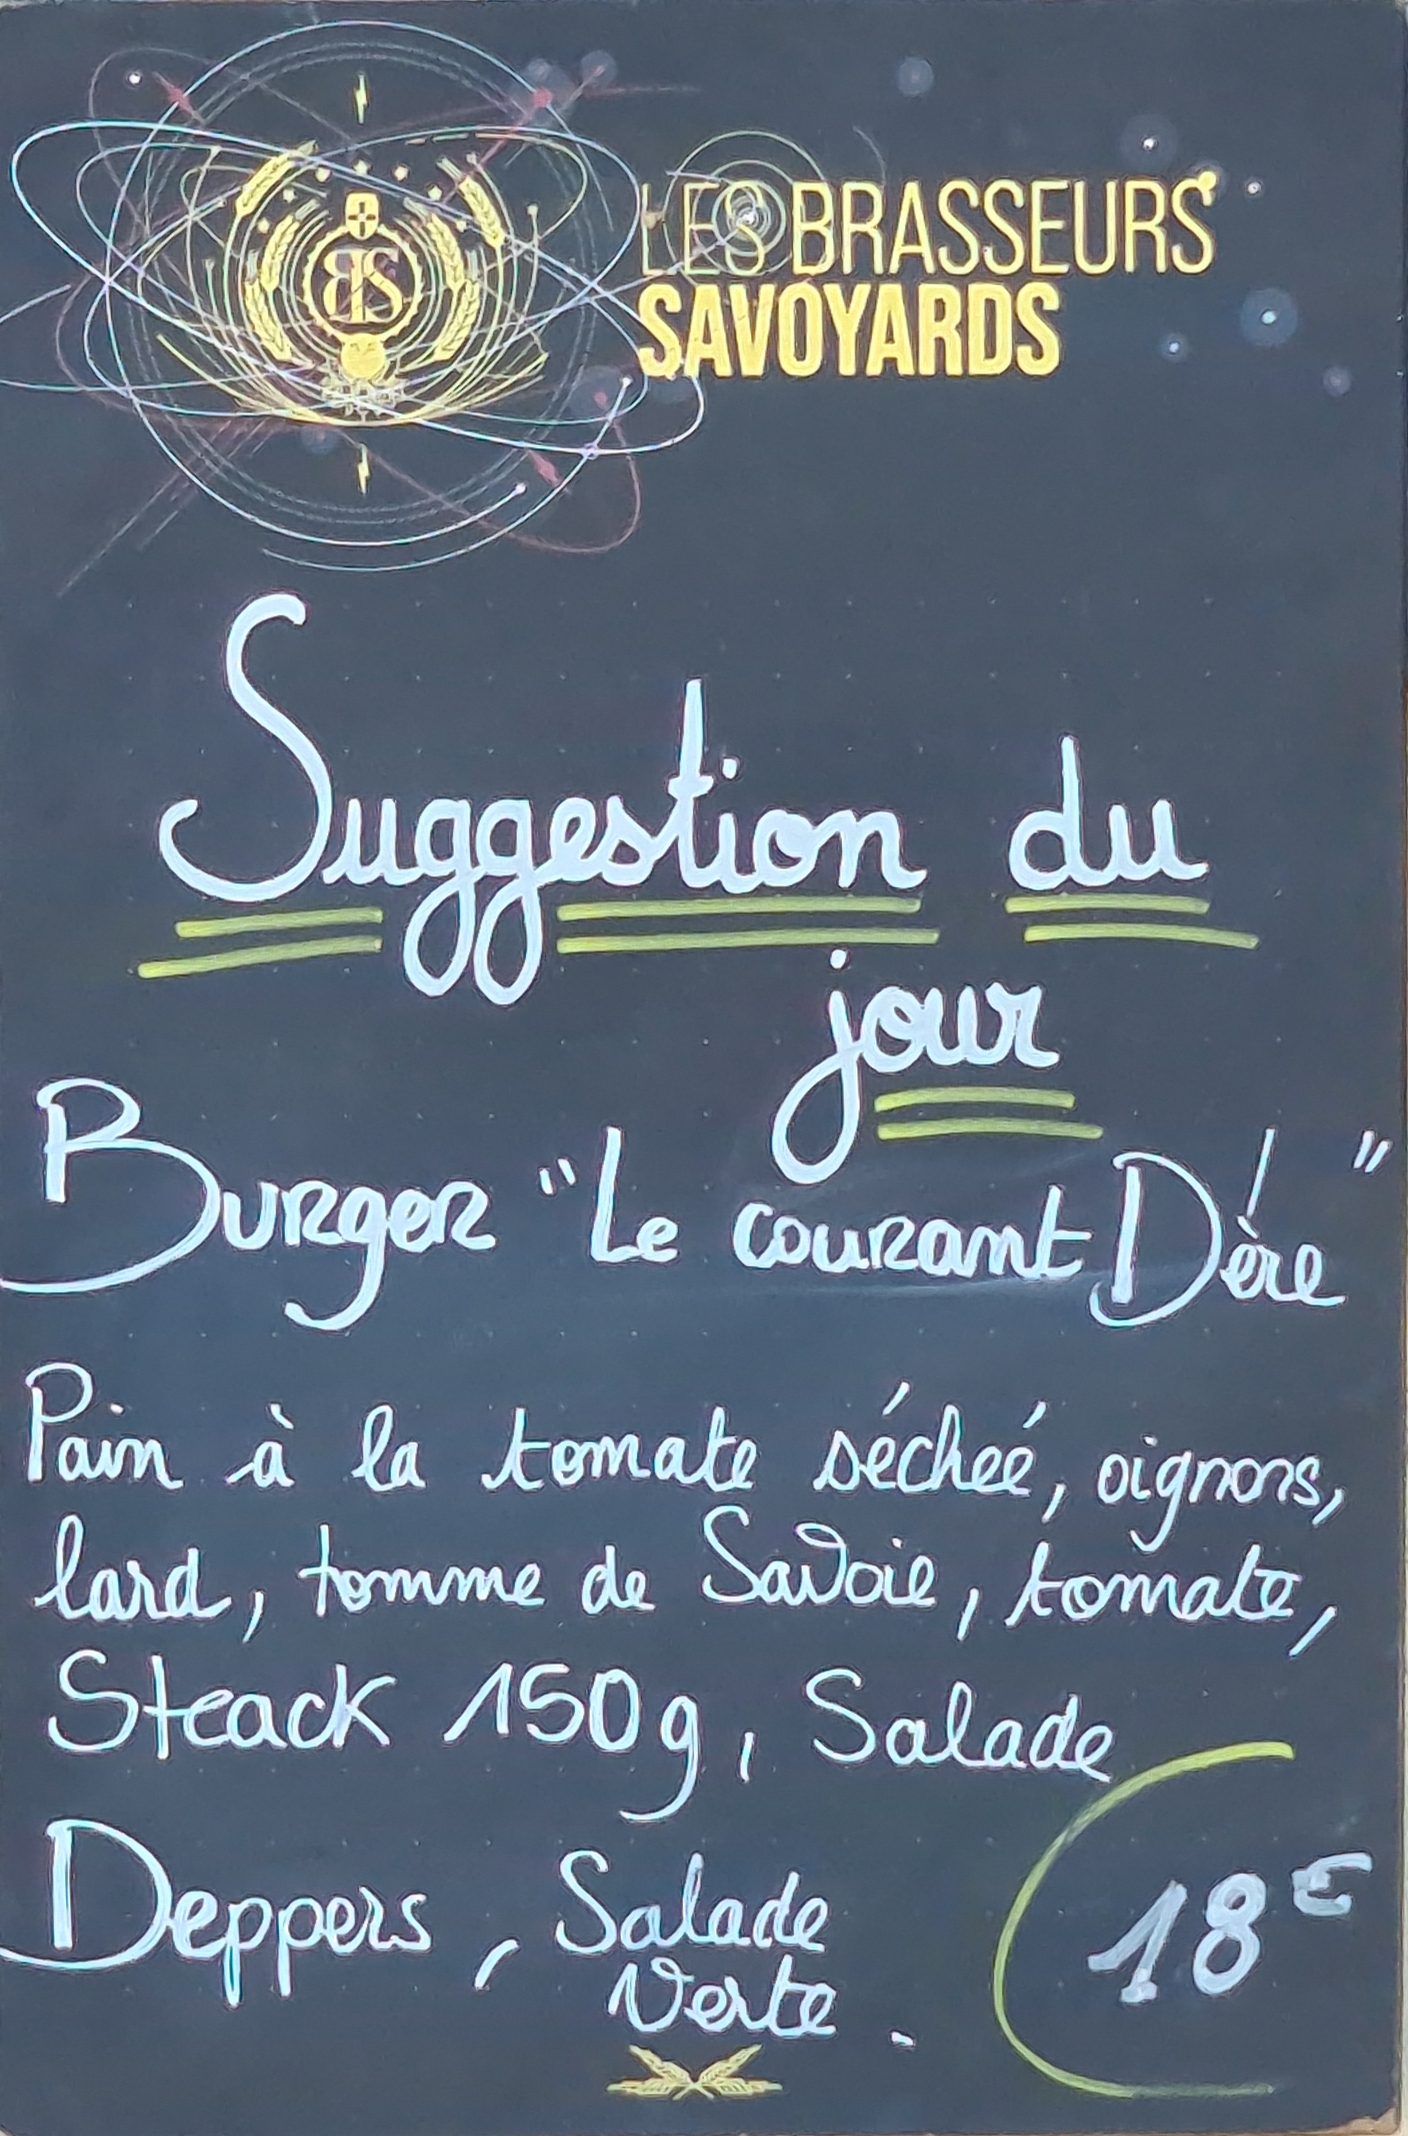 LES BRASSEURS
SAVOYARDS
BS
Suggestion du
jour
Burger "Le courant D'ère"
Pain à la tomate séchéé, oignons,
lard, tomme de Savoie, tomate,
Steack 150g, Salade
Deppers, Salade
Verte.
18€